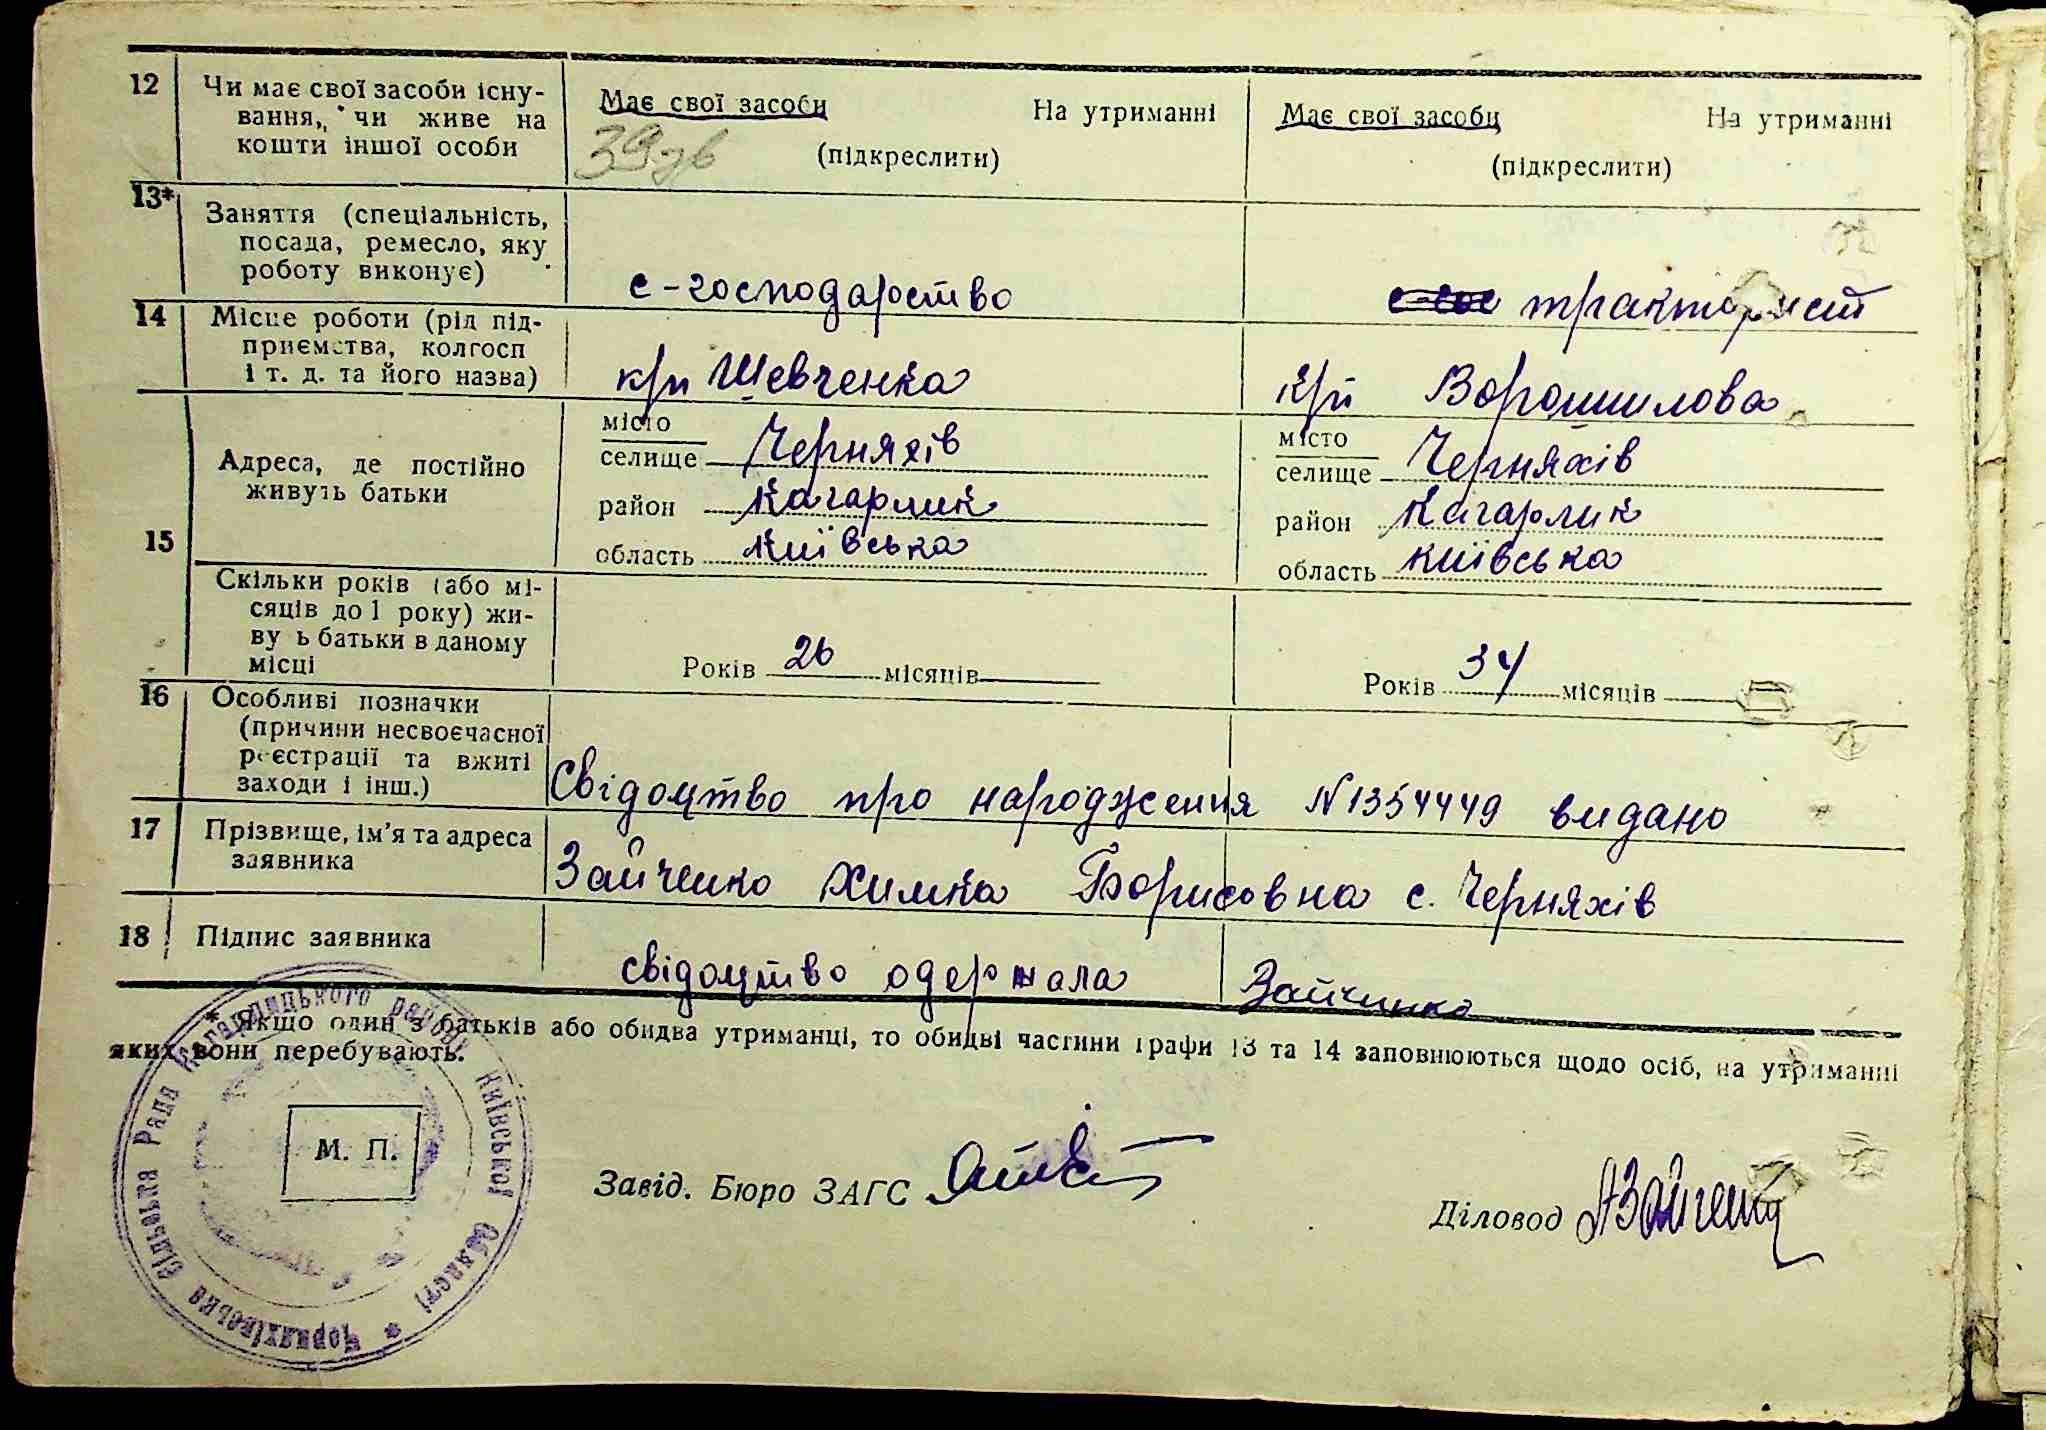 12 Чи має свої засоби існу-
вання, чи живе на
кошти іншої особи
Має свої засоби На утриманні
(підкреслити)
Має свої засоби На утриманні
(підкреслити)
13* Заняття (спеціальність,
посада, ремесло, яку
роботу виконує)
с-господарство
тракторист
14 Місце роботи (рід під-
приємства, колгосп
і т. д. та його назва)
к/рп Шевченка
к/рп Ворошилова
15 Адреса, де постійно
живуть батьки
місто
селище Черняхів
район Кагарлик
область Київська
місто
селище Черняхів
район Кагарлик
область Київська
Скільки років (або мі-
сяців до 1 року) жи-
ву ь батьки в даному
місці
Років 26 місяців
Років 34 місяців
16 Особливі позначки
(причини несвоєчасної
реєстрації та вжиті
заходи і інш.)
Свідоцтво про народження N1354449 видано
17 Прізвище, ім'я та адреса
заявника
Зайченко Химка Борисовна с. Черняхів
18 Підпис заявника
свідоцтво одержала Зайченко
* Якщо один з батьків або обидва утриманці, то обидві частини графи 13 та 14 заповнюються щодо осіб, на утриманні
яких вони перебувають.
М. П.
Завід. Бюро ЗАГС
Діловод АЗайченко
Черняхівська Сільська Рада Кагарлицького району Київської Області